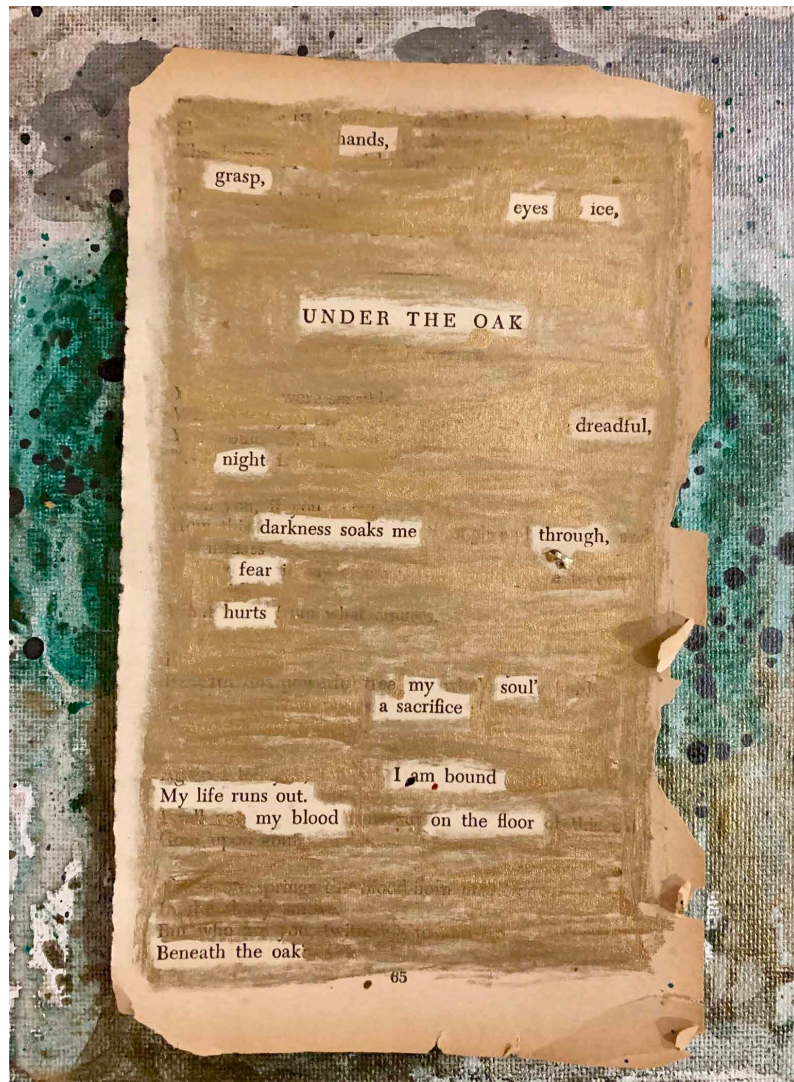 hands,
grasp,
eyes ice,
UNDER THE OAK
were sensible
dreadful,
night
darkness soaks me through,
fear
hurts
my soul'
a sacrifice
I am bound
My life runs out.
my blood on the floor
Beneath the oak
65